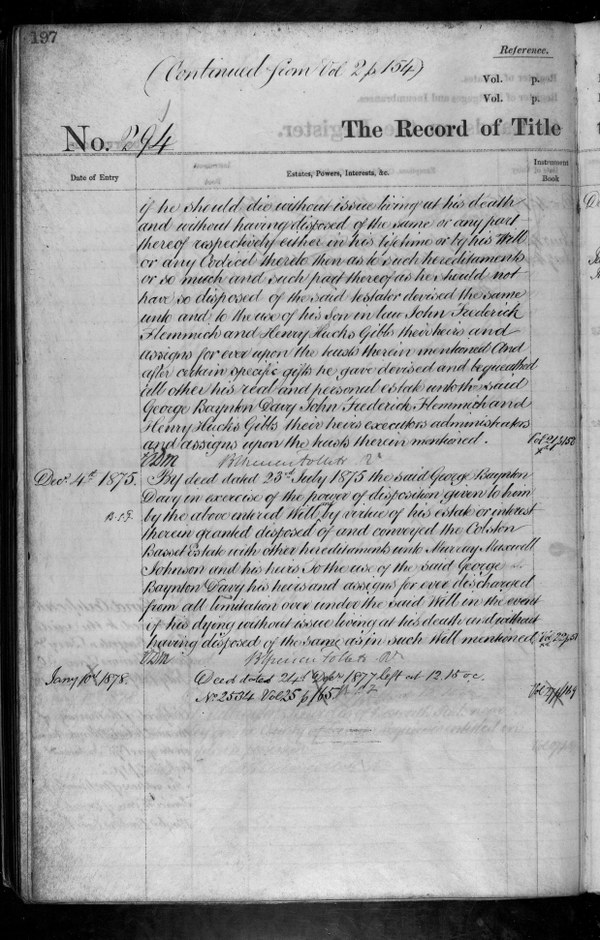 197
Reference.
(Continued from Vol 2 p 154)
Vol. p.
Vol. p.
No. 294 The Record of Title
Date of Entry Estates, Powers, Interests, &c. Instrument Book
if he should die without issue living at his death
and without having disposed of the same or any part
thereof respectively either in his lifetime or by his Will
or any Codicil thereto then as to such hereditaments
or so much and such part thereof as he should not
have so disposed of the said testator devised the same
unto and to the use of his son in law John Frederick
Flemmich and Henry Hucks Gibbs their heirs and
assigns for ever upon the trusts therein mentioned And
after certain specific gifts he gave devised and bequeathed
all other his real and personal estate unto the said
George Baynton Davy John Frederick Flemmich and
Henry Hucks Gibbs their heirs executors administrators
and assigns upon the trusts therein mentioned.
Decr. 4th 1875. By deed dated 23rd July 1875 the said George Baynton
Davy in exercise of the power of disposition given to him
by the above entered Will by virtue of his estate or interest
therein granted disposed of and conveyed the Colston
Basset Estate with other hereditaments unto Murray Maxwell
Johnson and his heirs To the use of the said George
Baynton Davy his heirs and assigns for ever discharged
from all limitation over under the said Will in the event
of his dying without issue living at his death and without
having disposed of the same as in such Will mentioned
Jany 10th 1878. Deed dated 24th Septr 1877 left at 12.15 o.c.
No 2534 Vol 25 p 165